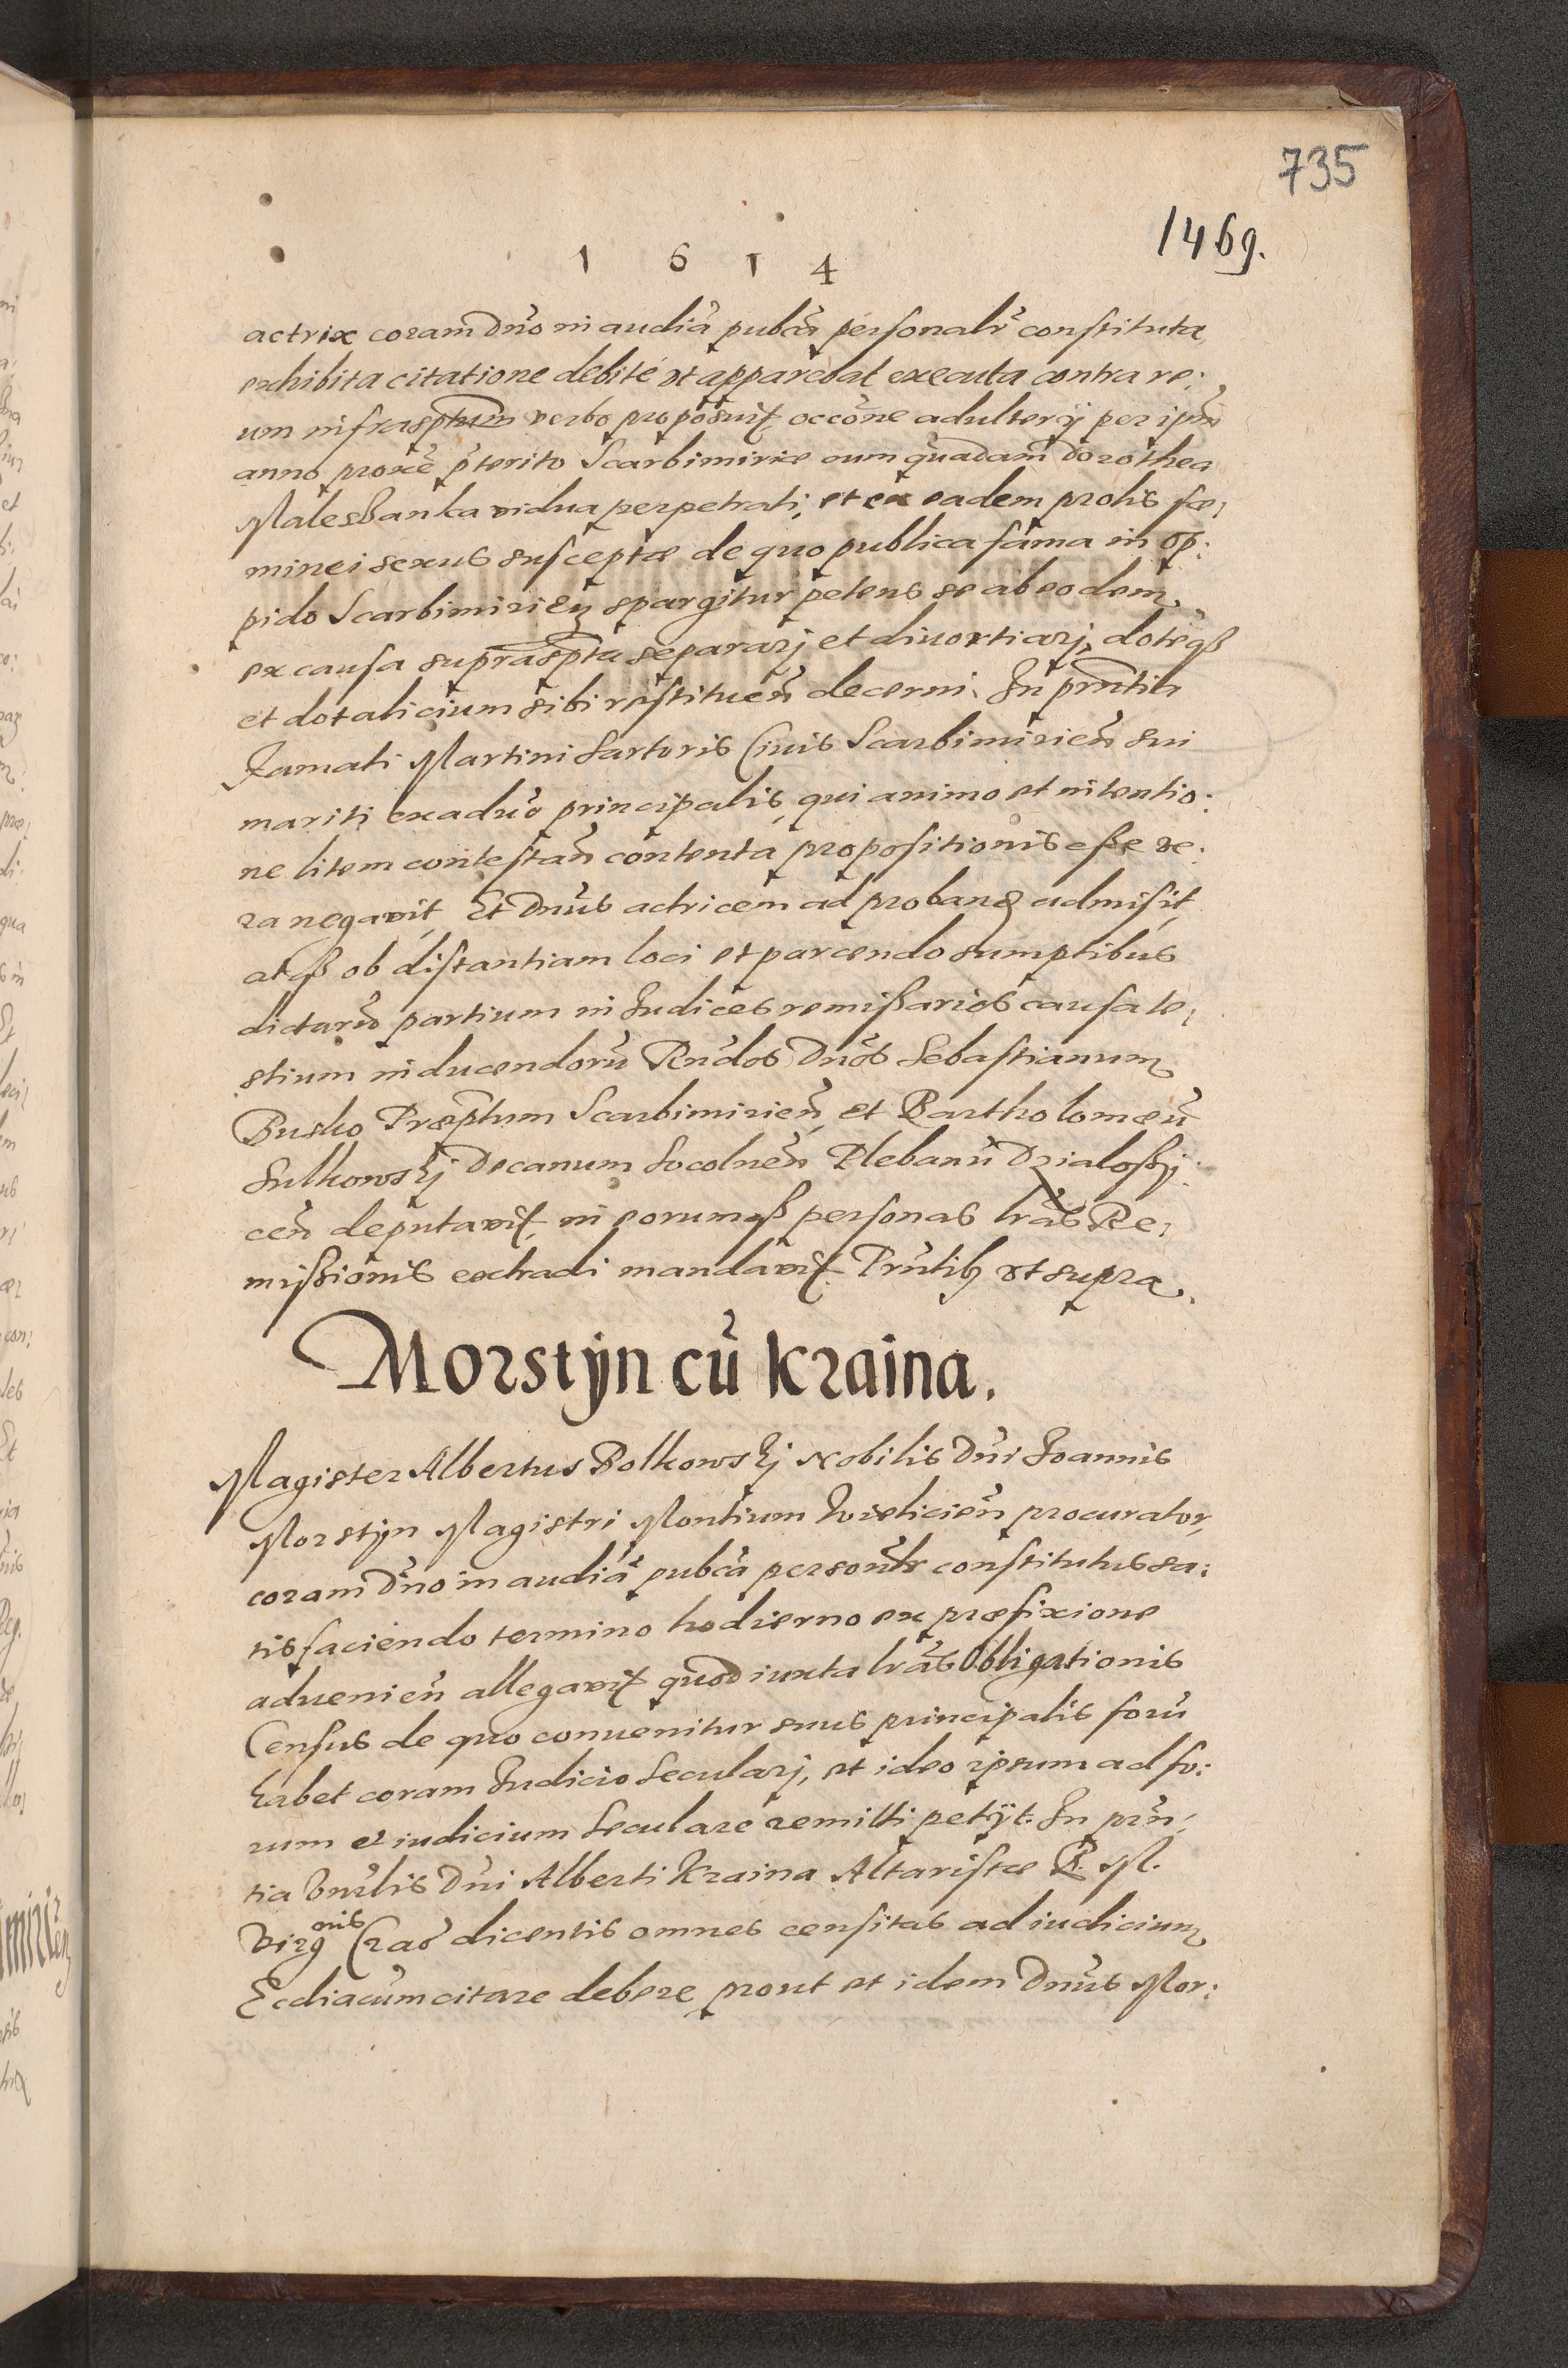 735
1469.
1 6 1 4
actrix coram Dno in audia pubca personalr constituta
exhibita citatione debite ut apparebat executa contra re:
um infrasptum verbo proposuit occone adulterÿ per ipm
anno proxe pterito Scarbimiriæ cum quadam Dorothea
vidua perpetrati, et ex eadem prolis fæ:
minei sexus susceptæ de quo publica fama in op:
pido Scarbimirien spargitur petens se ab eodem
ex causa suprasptu separarj et diuortiarj, doteqß
et dotalicium sibi restituen decerni. In pntia
Famati Martini Sartoris Ciuis Scarbimirien sui
mariti exaduo principalis, qui animo et intentio:
ne litem contestan contenta propositionis eße ve:
ra negavit, Et Dnus actricem ad proband admisit,
atqß ob distantiam loci et parcendo sumptibus
dictaru partium in Iudices remißarios causa te:
stium inducendoru Rndos Dnos Sebastianum
Busko Præptum Scarbimirien, et Bartholomæu
Sulkowskj Decanum Socolnen Plebanu Dzialoßÿ:
cen deputavit, in eorumqß personas lras Re:
mißionis extradi mandavit. Pntibus ut supra.
Morstÿn cu Kraina.
Magister Albertus Bolkowskj Nobilis Dni Ioannis
Morstÿn Magistri Montium Wielicien procurator,
coram Dno in audia pubca personlr constitutus sa:
tisfaciendo termino hodierno ex præfixione
aduenien allegavit quod iuxta lras Obligationis
Census de quo conuenitur suus principalis foru
habet coram Iudicio Secularj, et ideo ipsum ad fo:
rum et iudicium Seculare remitti petÿt. In pn:
tia Vnrlis Dni Alberti Kraina Altaristæ B. M.
Virgnis Crac dicentis omnes censitas ad iudicium
Ecdiacum citare debere, prout et idem Dnus Mor: